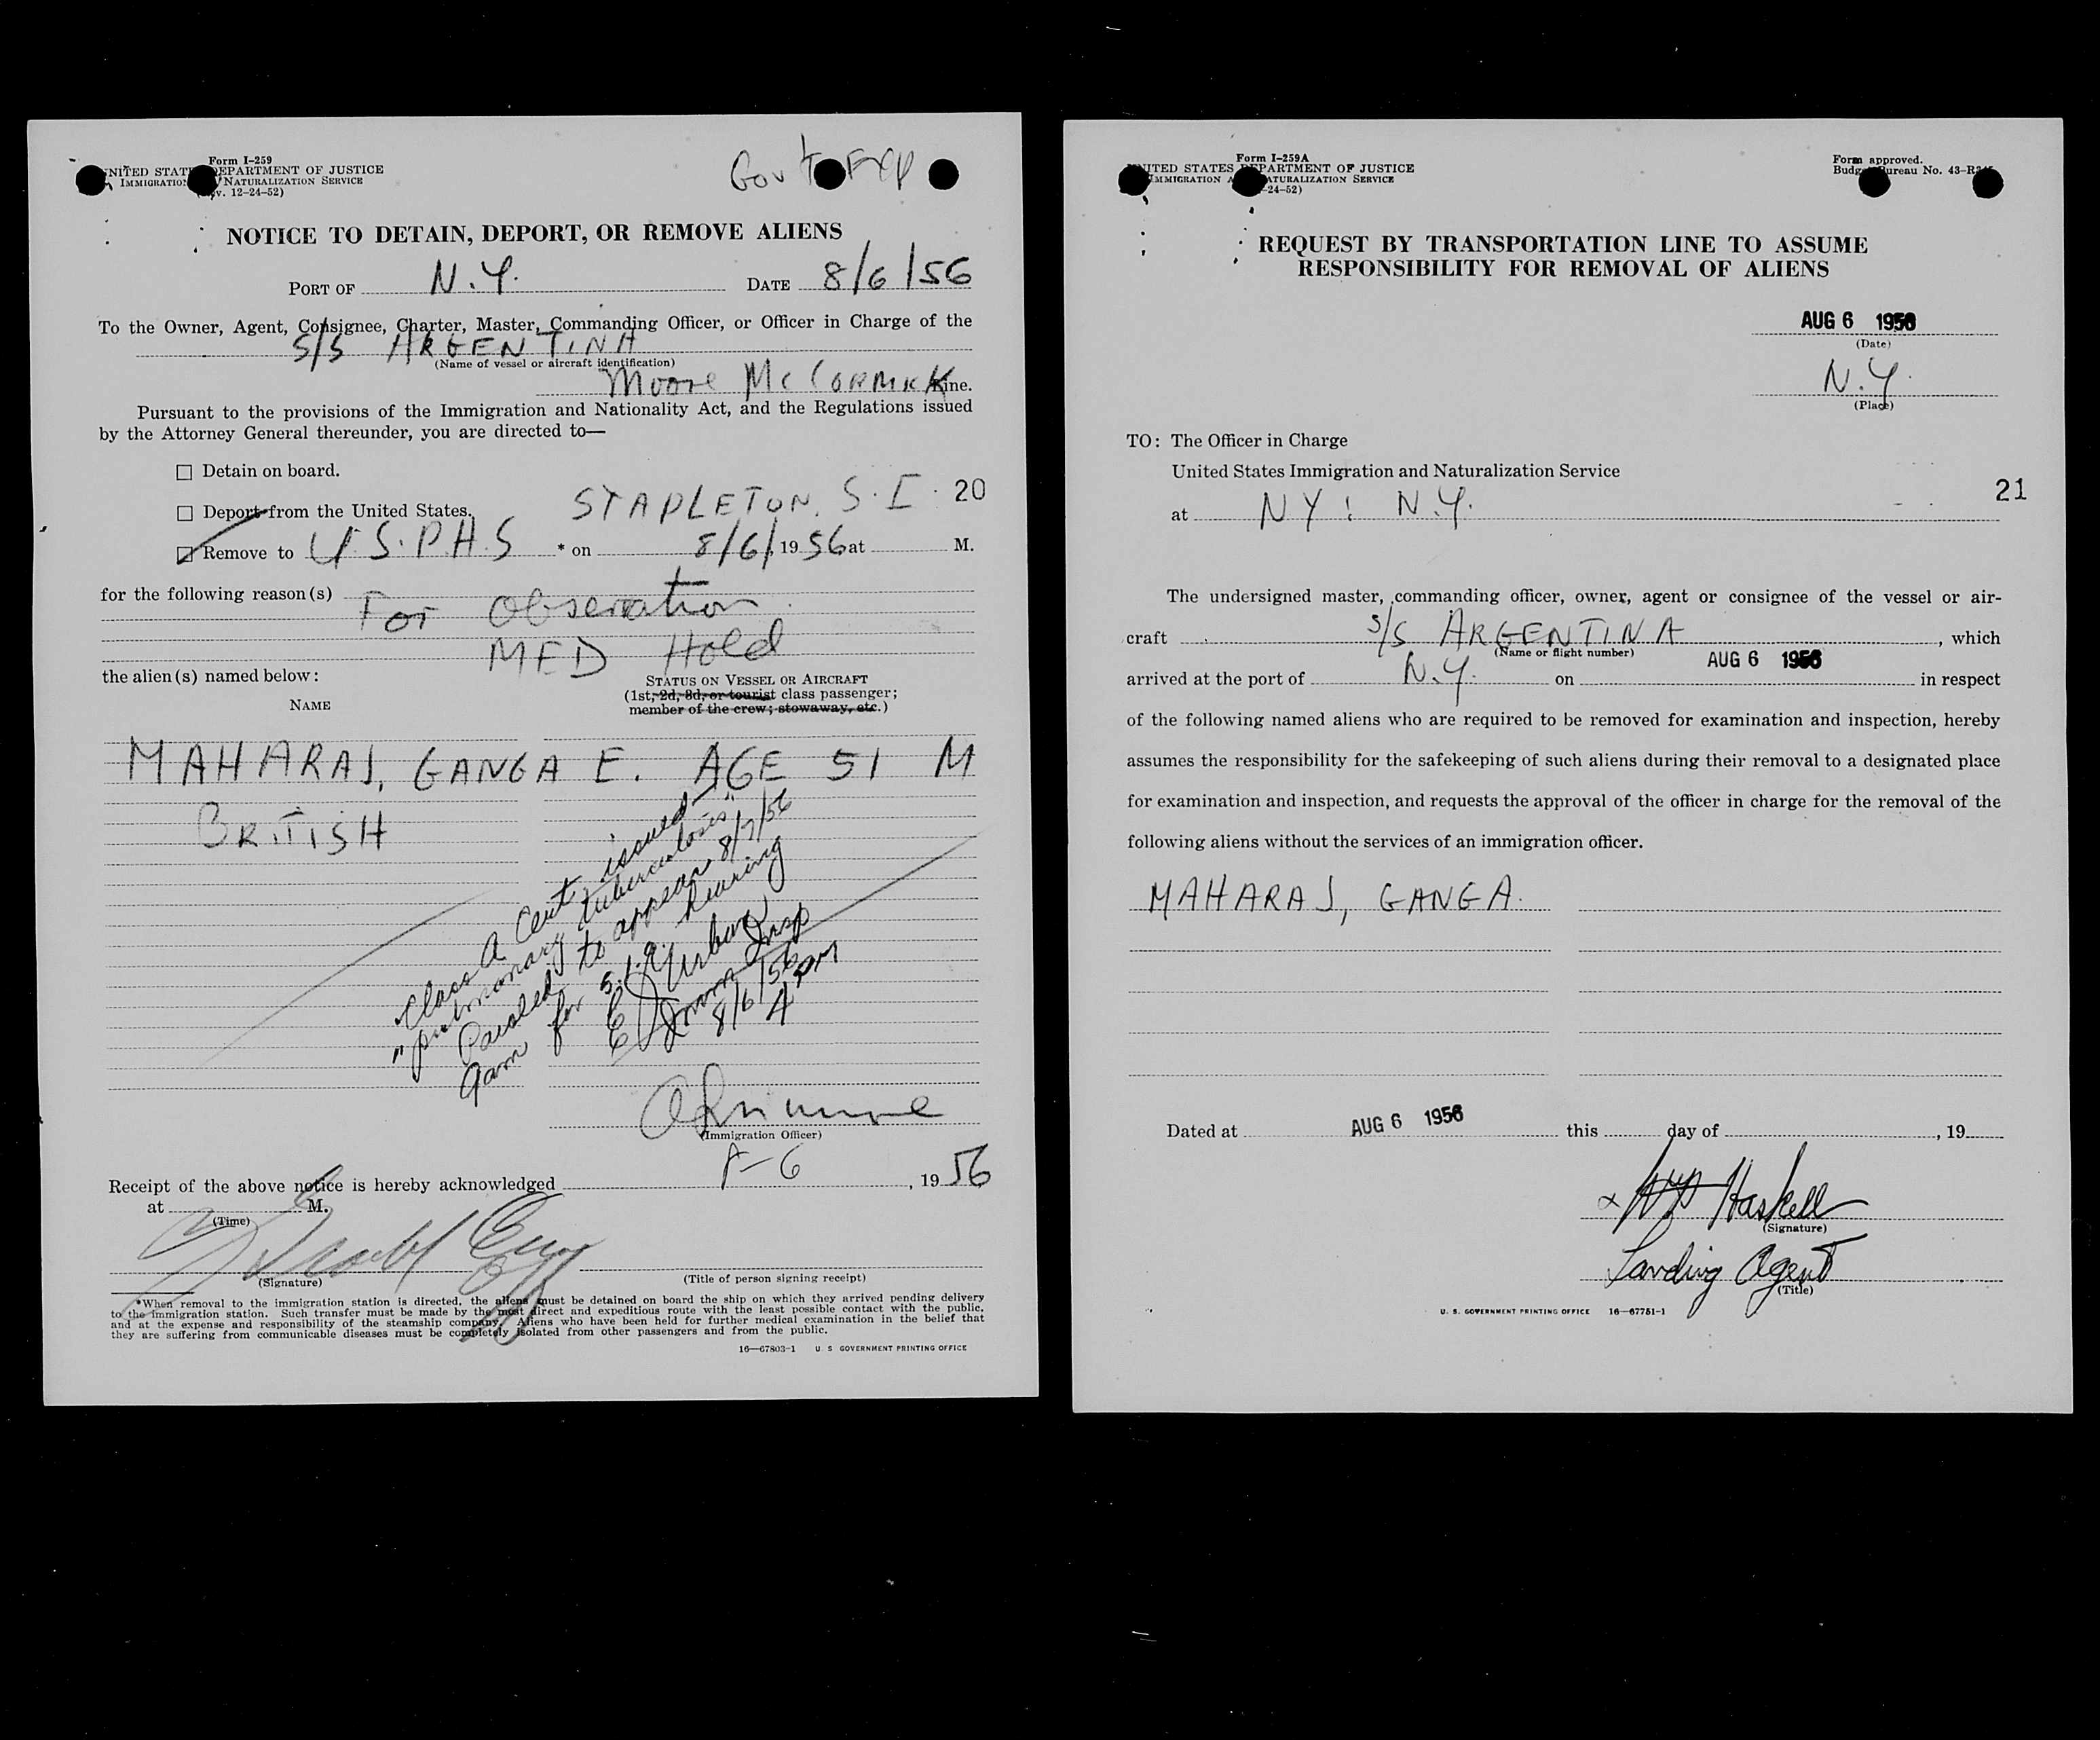 Form I-259
UNITED STATES DEPARTMENT OF JUSTICE
IMMIGRATION NATURALIZATION SERVICE
(Rev. 12-24-52)
Gov't Exp
NOTICE TO DETAIN, DEPORT, OR REMOVE ALIENS
PORT OF N.Y. DATE 8/6/56
To the Owner, Agent, Consignee, Charter, Master, Commanding Officer, or Officer in Charge of the
S/S ARGENTINA
(Name of vessel or aircraft identification)
Moore McCormick Line.
Pursuant to the provisions of the Immigration and Nationality Act, and the Regulations issued
by the Attorney General thereunder, you are directed to—
☐ Detain on board.
☐ Deport from the United States. STAPLETON, S.I. 20
☑ Remove to U.S.P.H.S * on 8/6/, 1956 at M.
for the following reason(s)
For Observation.
MED Hold
the alien(s) named below:
NAME
STATUS ON VESSEL OR AIRCRAFT
(1st, 2d, 3d, or tourist class passenger;
member of the crew; stowaway, etc.)
MAHARAJ, GANGA E. AGE 51 M
BRITISH
Class A Cert issued
"pulmonary tuberculosis".
Paroled to appear 8/7/56
9am for S.I.Q. hearing
E J Urban
Imm Insp
8/6/56
4 PM
(Immigration Officer)
Receipt of the above notice is hereby acknowledged 8-6, 1956
at M.
(Time)
(Signature)
(Title of person signing receipt)
*When removal to the immigration station is directed, the aliens must be detained on board the ship on which they arrived pending delivery
to the immigration station. Such transfer must be made by the most direct and expeditious route with the least possible contact with the public,
and at the expense and responsibility of the steamship company. Aliens who have been held for further medical examination in the belief that
they are suffering from communicable diseases must be completely isolated from other passengers and from the public.
16—67803-1 U. S. GOVERNMENT PRINTING OFFICE
Form I-259A
UNITED STATES DEPARTMENT OF JUSTICE
IMMIGRATION A NATURALIZATION SERVICE
-24-52)
Form approved.
Budget Bureau No. 43-R
REQUEST BY TRANSPORTATION LINE TO ASSUME
RESPONSIBILITY FOR REMOVAL OF ALIENS
AUG 6 1956
(Date)
N.Y.
(Place)
TO: The Officer in Charge
United States Immigration and Naturalization Service
21
at NY: N.Y.
The undersigned master, commanding officer, owner, agent or consignee of the vessel or air-
craft S/S ARGENTINA, which
(Name or flight number)
arrived at the port of N.Y. on AUG 6 1956 in respect
of the following named aliens who are required to be removed for examination and inspection, hereby
assumes the responsibility for the safekeeping of such aliens during their removal to a designated place
for examination and inspection, and requests the approval of the officer in charge for the removal of the
following aliens without the services of an immigration officer.
MAHARAJ, GANGA.
Dated at AUG 6 1956 this day of , 19
x Haskell
(Signature)
Landing Agent
(Title)
U. S. GOVERNMENT PRINTING OFFICE 16—67751-1